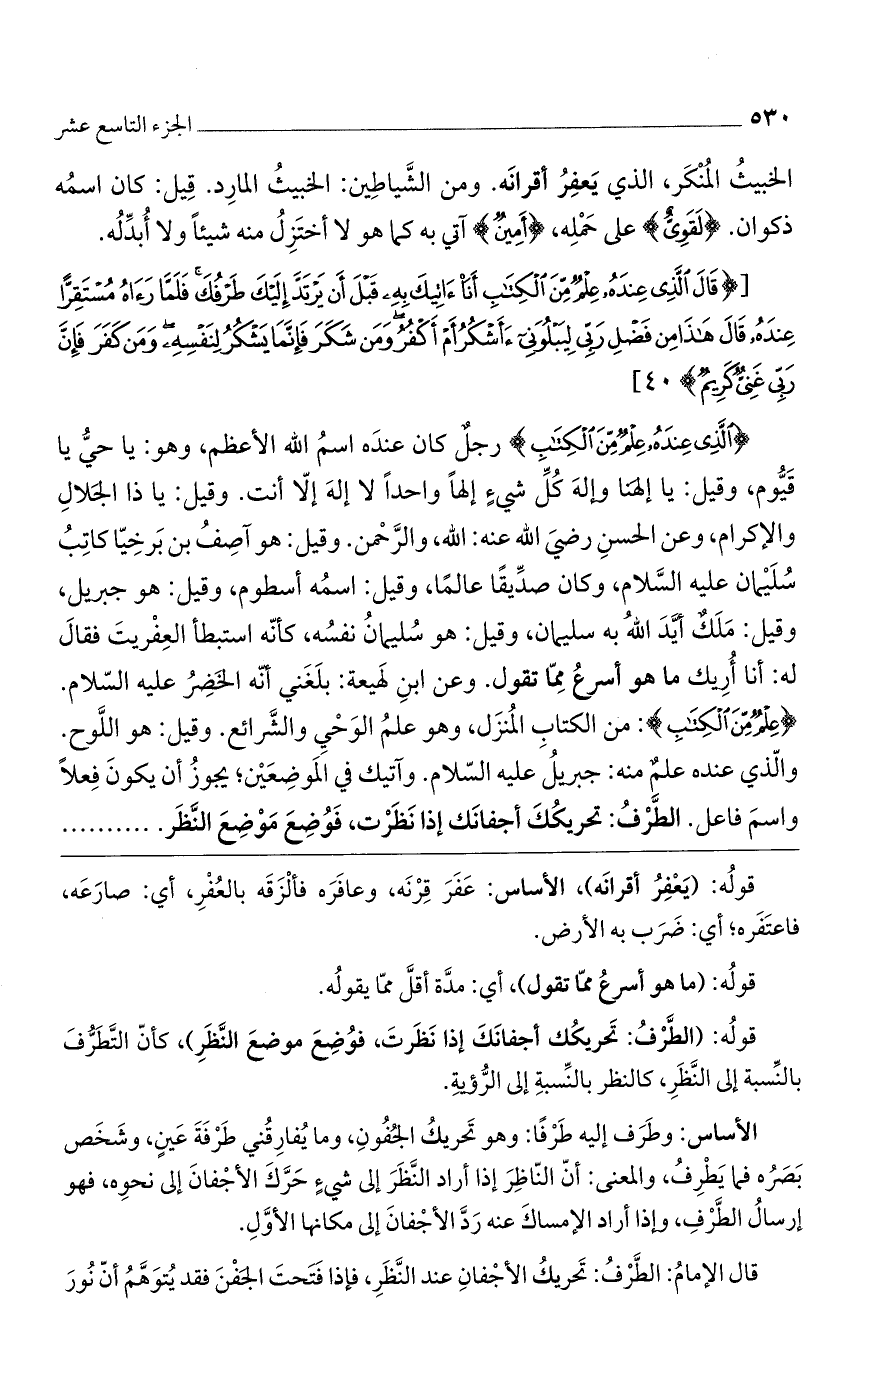 ٥٣٠ الجزء التاسع عشر
الخبيثُ المُنْكَر، الذي يَعفِرُ أقرانَه. ومن الشَّياطِين: الخبيثُ المارِد. قِيل: كان اسمُه
ذكوان. ﴿لَقَوِىٌّ﴾ على حَمْلِه، ﴿أَمِينٌ﴾ آتي به كما هو لا أختَزِلُ منه شيئاً ولا أُبدِّلُه.
[﴿قَالَ ٱلَّذِى عِندَهُۥ عِلْمٌ مِّنَ ٱلْكِتَٰبِ أَنَا۠ ءَاتِيكَ بِهِۦ قَبْلَ أَن يَرْتَدَّ إِلَيْكَ طَرْفُكَ ۚ فَلَمَّا رَءَاهُ مُسْتَقِرًّا
عِندَهُۥ قَالَ هَٰذَا مِن فَضْلِ رَبِّى لِيَبْلُوَنِىٓ ءَأَشْكُرُ أَمْ أَكْفُرُ ۖ وَمَن شَكَرَ فَإِنَّمَا يَشْكُرُ لِنَفْسِهِۦ ۖ وَمَن كَفَرَ فَإِنَّ
رَبِّى غَنِىٌّ كَرِيمٌ﴾ ٤٠]
﴿ٱلَّذِى عِندَهُۥ عِلْمٌ مِّنَ ٱلْكِتَٰبِ﴾ رجلٌ كان عندَه اسمُ الله الأعظم، وهو: يا حيُّ يا
قَيُّوم، وقيل: يا إلهَنا وإلهَ كُلِّ شيءٍ إلهاً واحداً لا إلهَ إلّا أنت. وقيل: يا ذا الجَلالِ
والإكرام، وعن الحسنِ رضيَ الله عنه: الله، والرَّحْمن. وقيل: هو آصِفُ بن بَرخِيّا كاتِبُ
سُلَيْمان عليه السَّلام، وكان صدِّيقًا عالمًا، وقيل: اسمُه أسطوم، وقيل: هو جبريل،
وقيل: مَلَكٌ أيَّدَ اللهُ به سليمان، وقيل: هو سُليمانُ نفسُه، كأنّه استبطأ العِفْريتَ فقالَ
له: أنا أُريك ما هو أسرعُ مِمّا تقول. وعن ابنِ لَهيعة: بلَغَني أنّه الخَضِرُ عليه السّلام.
﴿عِلْمٌ مِّنَ ٱلْكِتَٰبِ﴾: من الكتابِ المُنزَل، وهو علمُ الوَحْيِ والشَّرائع. وقيل: هو اللَّوح.
والّذي عنده علمٌ منه: جبريلُ عليه السّلام. وآتيك في المَوضِعَيْن؛ يجوزُ أن يكونَ فِعلاً
واسمَ فاعل. الطَّرْفُ: تحريكُكَ أجفانَك إذا نَظَرْت، فَوُضِعَ مَوْضِعَ النَّظَر. ..........
قولُه: (يَعْفِرُ أقرانَه)، الأساس: عَفَرَ قِرْنَه، وعافَرَه فألْزَقَه بالعُفْرِ، أي: صارَعَه،
فاعتَفَره؛ أي: ضَرَب به الأرض.
قولُه: (ما هو أسرعُ ممّا تقول)، أي: مدَّة أقلَّ ممّا يقولُه.
قولُه: (الطَّرْفُ: تَحريكُك أجفانَكَ إذا نَظَرتَ، فوُضِعَ موضعَ النَّظَرِ)، كأنّ التَّطَرُّفَ
بالنِّسبة إلى النَّظَرِ، كالنظر بالنِّسبةِ إلى الرُّؤيةِ.
الأساس: وطَرَف إليه طَرْفًا: وهو تَحريكُ الجُفُونِ، وما يُفارِقُني طَرْفَةَ عَينٍ، وشَخَص
بَصَرُه فما يَطْرِفُ، والمعنى: أنّ النّاظِرَ إذا أراد النَّظَرَ إلى شيءٍ حَرَّكَ الأجْفانَ إلى نحوِه، فهو
إرسالُ الطَّرْفِ، وإذا أراد الإمساكَ عنه رَدَّ الأجْفانَ إلى مكانها الأوَّلِ.
قال الإمامُ: الطَّرْفُ: تَحريكُ الأجْفانِ عند النَّظَرِ، فإذا فَتَحتَ الجَفْنَ فقد يُتوَهَّمُ أنّ نُورَ